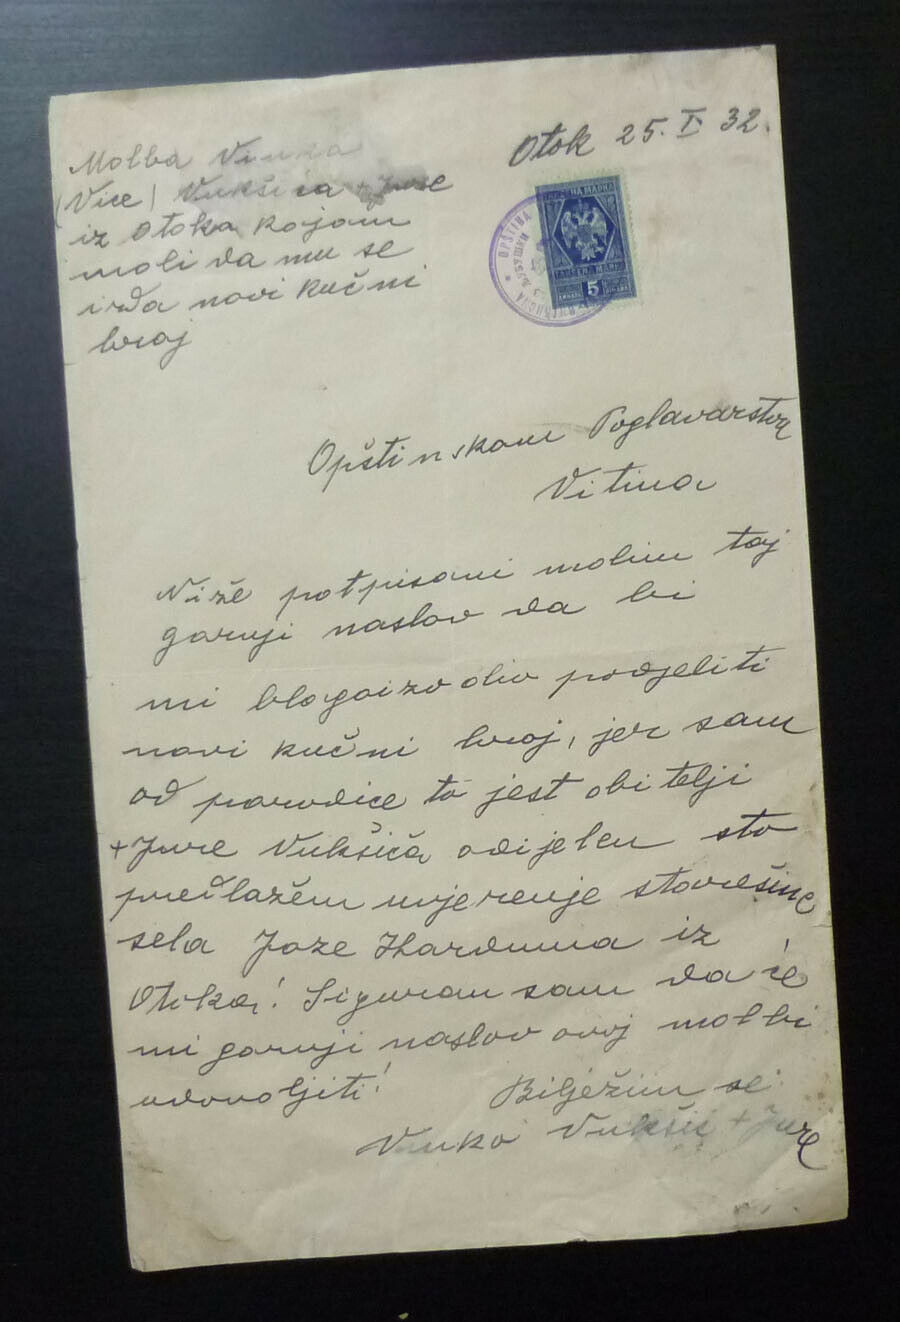 Otok 25. I. 32.
Molba Vinka
(Vice) Vukšića + Jure
iz Otoka kojom
moli da mu se
izda novi kučni
broj
ТАКСЕНА МАРКА
ТАКСЕНА МАРКА
ДИНАРА 5 DINARA
OPŠTINA
ЉУБУШКИ
Opštinskom Poglavarstvu
Vitina
Niže potpisani molim taj
gornji naslov da bi
mi blagoizvolio podjeliti
novi kučni broj, jer sam
od porodice to jest obitelji
+ Jure Vukšića odijelen što
predlažem uvjerenje starešine
sela Joze Harduma iz
Otoka! Siguran sam da će
mi gornji naslov ovoj molbi
udovoljiti!
Bilježim se
Vinko Vukšić + Jure